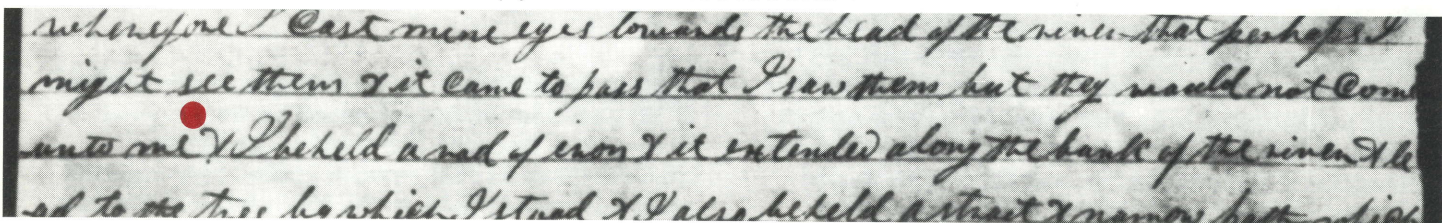 wherefore I Cast mine eyes towards the head of the river that perhaps I
might see them & it Came to pass that I saw them but they would not Come
unto me & I beheld a rod of iron & it extended along the bank of the river & le
ed to the tree by which I stood & I also beheld a strait & narrow path which